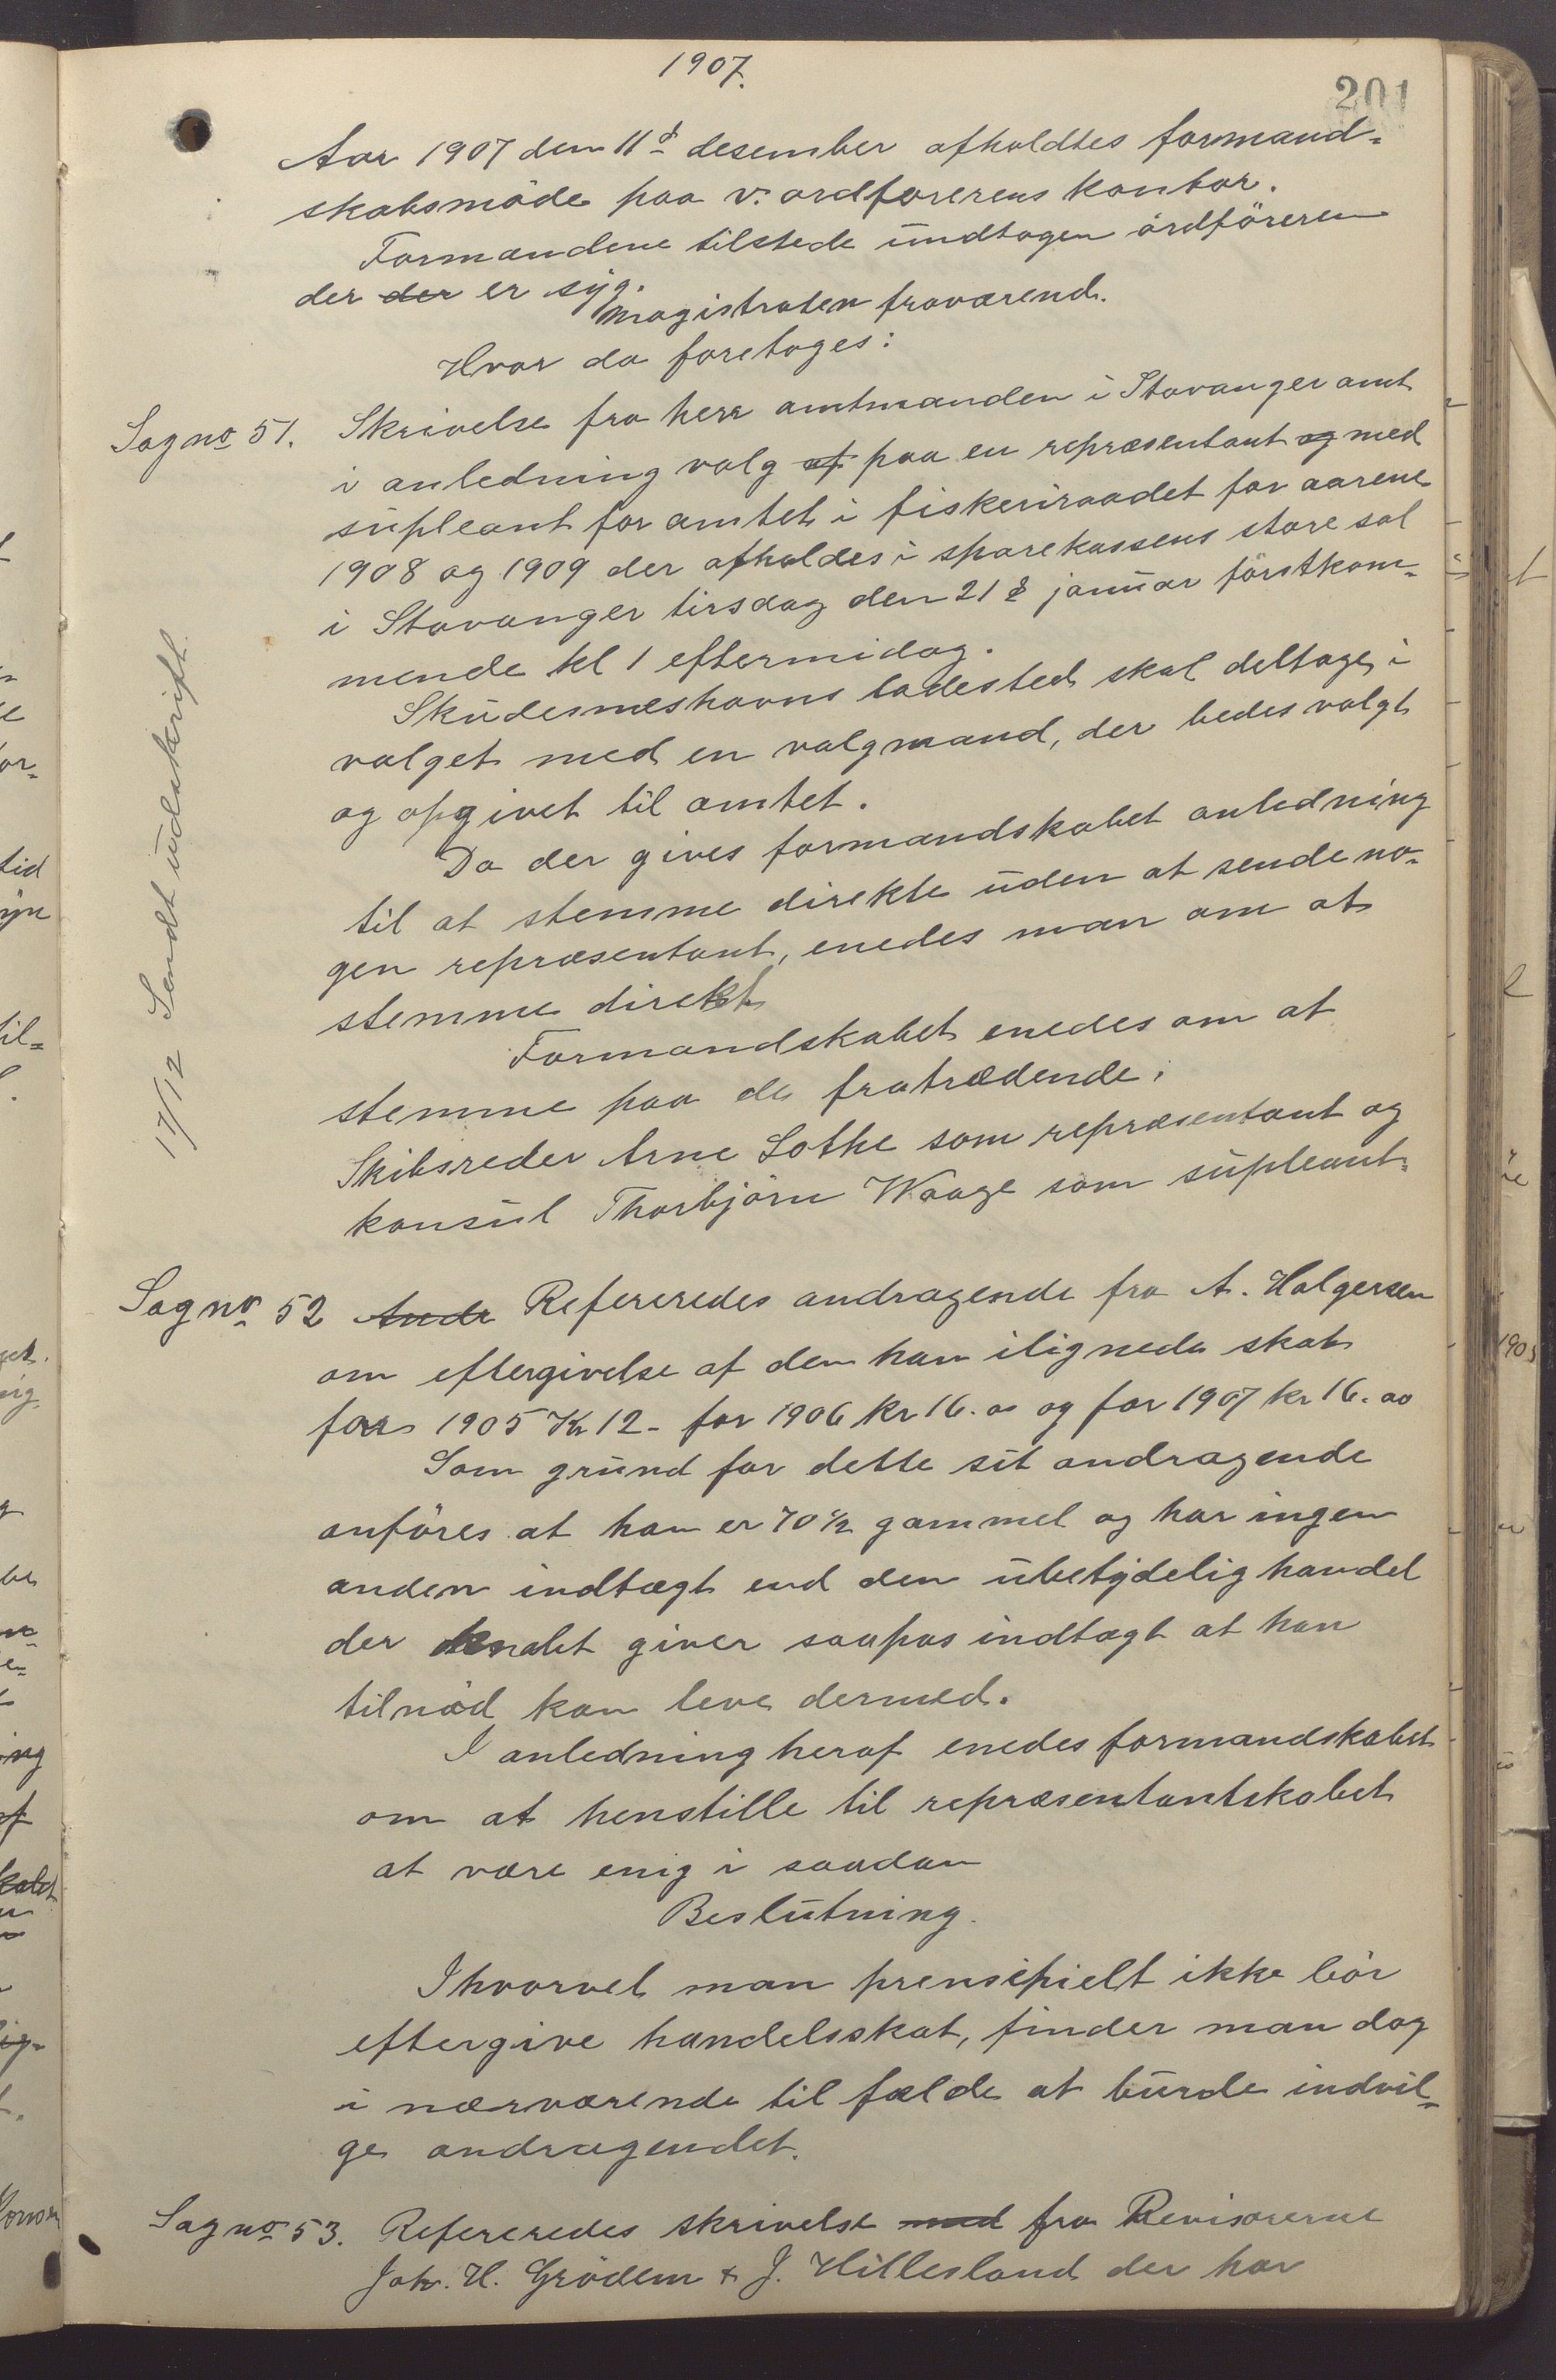 1907.
201
Aar 1907 den 11te desember afholdtes formand-
skabsmöde paa v. ordförerens kontor.
Formandene tilstede undtagen ordföreren
der der er syg.
Magistraten fraværende.
Hvor da foretoges:
Sag no 51. Skrivelse fra herr amtmanden i Stavanger amt
i anledning valg af paa en repræsentant og med
supleant for amtet i fiskeriraadet for aarene
1908 og 1909 der afholdes i sparekassens store sal
i Stavanger tirsdag den 21de januar förstkom-
mende kl 1 eftermidag.
Skudesneshavns ladested skal deltage i
valget med en valgmand, der bedes valgt
og opgivet til amtet.
Da der gives formandskabet anledning
til at stemme direkte uden at sende no-
gen repræsentant, enedes man om at
stemme direkt
Formandskabet enedes om at
stemme paa de fratrædende,
Skibsreder Arne Lothe som repræsentant og
konsul Thorbjörn Waage som supleant.
17/12 Sendt udskrift.
Sag no 52 Andr Refereredes andragende fra A. Halgersen
om eftergivelse af den ham ilignede skat
for 1905 Kr 12- for 1906 kr 16.00 og for 1907 kr 16.00
Som grund for dette sit andragende
anföres at han er 70 1/2 gammel og har ingen
anden indtægt end den ubetydelig handel
der giver saapas indtægt at han
tilnöd kan leve dermed.
I anledning heraf enedes formandskabet
om at henstille til repræsentantskabet
at være enig i saadan
Beslutning.
Ihvorvel man prensipielt ikke bör
eftergive handelsskat, finder man dog
i nærværende til fælde at burde indvil-
ge andragendet.
Sag no 53. Refereredes skrivelse med fra Revisorerne
Joh. H. Grödem & J. Hillesland der har